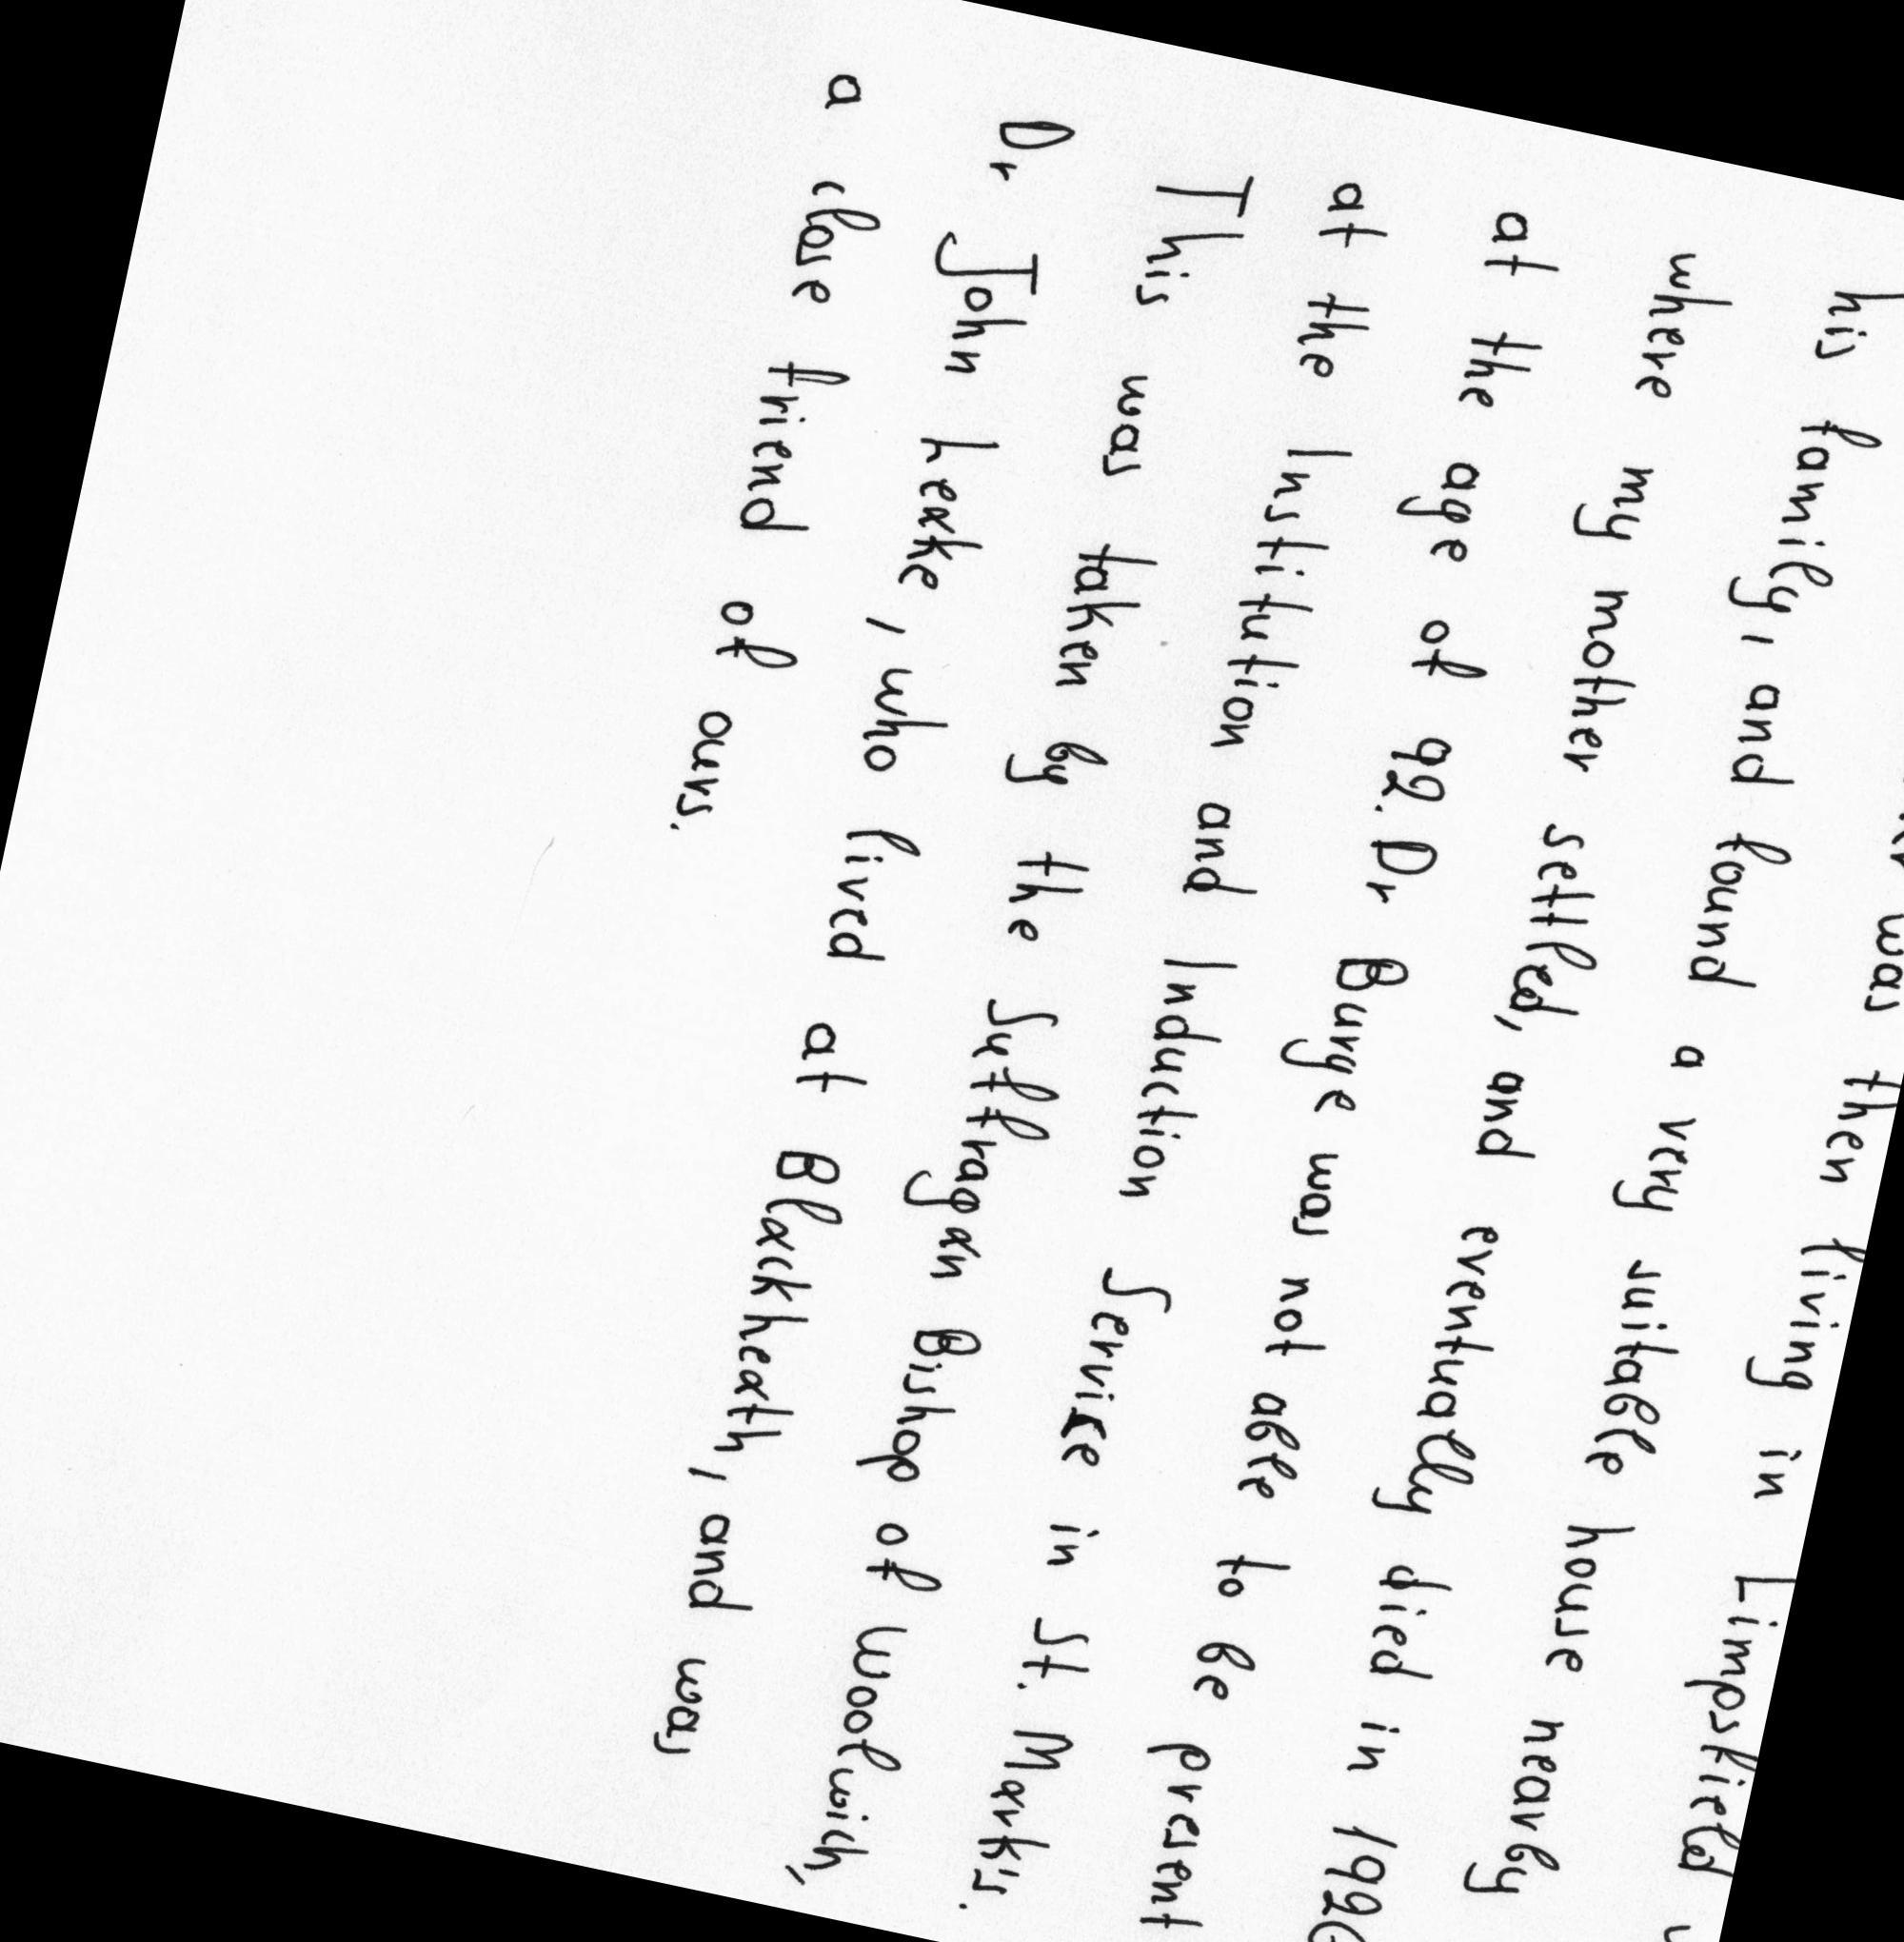 was then living in Limpsfield
his family, and found a very suitable house nearby
where my mother settled, and eventually died in
at the age of 92. Dr Burge was not able to be present
at the Institution and Induction Service in St. Mark's.
This was taken by the Suffragan Bishop of Woolwich,
Dr John Leake, who lived at Blackheath, and was
a close friend of ours.